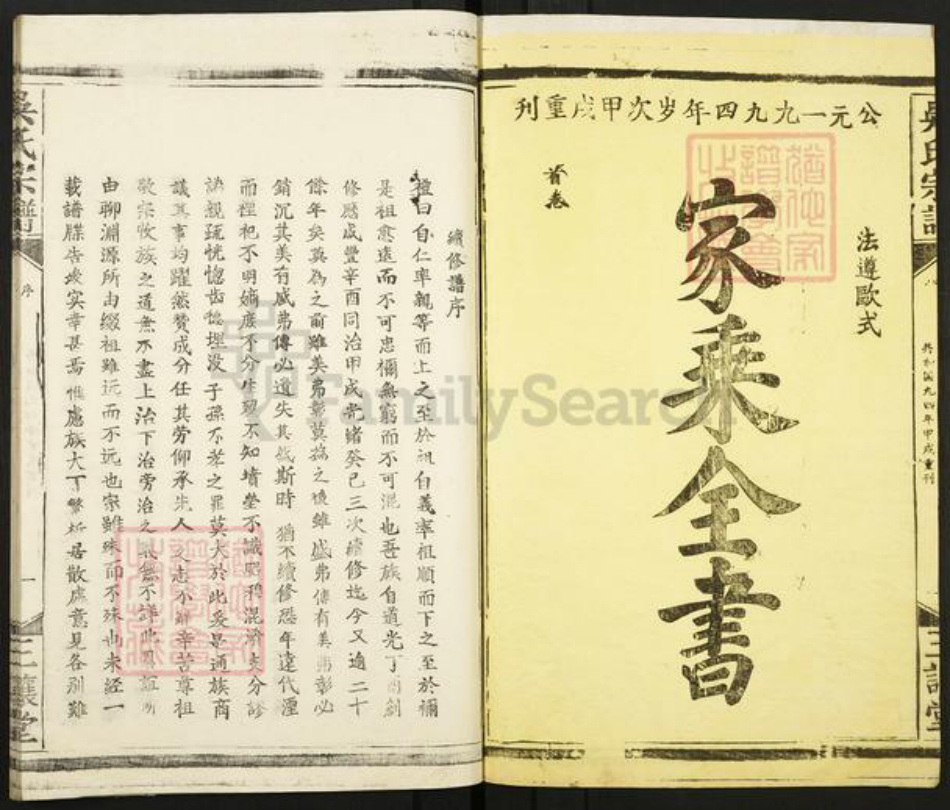 公元一九九四年岁次甲戌重刊
法遵歐式
家乘全書
首卷
吳氏宗譜
三讓堂
共和國九四年甲戌重刊
續修譜序
禮曰自仁率親等而上之至於祖自義率祖順而下之至於禰
是祖愈遠而不可忠禰無窮而不可混也吾族自道光丁酉創
修歷咸豐辛酉同治甲戌光緒癸巳三次續修迄今又逾二十
餘年矣莫為之前雖美弗彰莫為之後雖盛弗傳有美弗彰必
銷沉其美有盛弗傳必遺失其盛斯時猶不續修恐年遠代湮
而禋祀不明嫡庶不分生娶不知墳塋不識
親疏恍惚齒德埋没子孫不孝之罪莫大於此爰是通族商
議其事均躍然贊成分任其勞仰承先人之志不辭辛苦尊祖
敬宗收族之道無不盡上治下治旁治之
由聊淵源所由綴祖雖远而不远也宗雖殊而不殊也未經一
載譜牒告竣实幸甚焉惟慮族大丁繁析居散處意見各別難
吳氏宗譜
序
一
三讓堂
FamilySearch